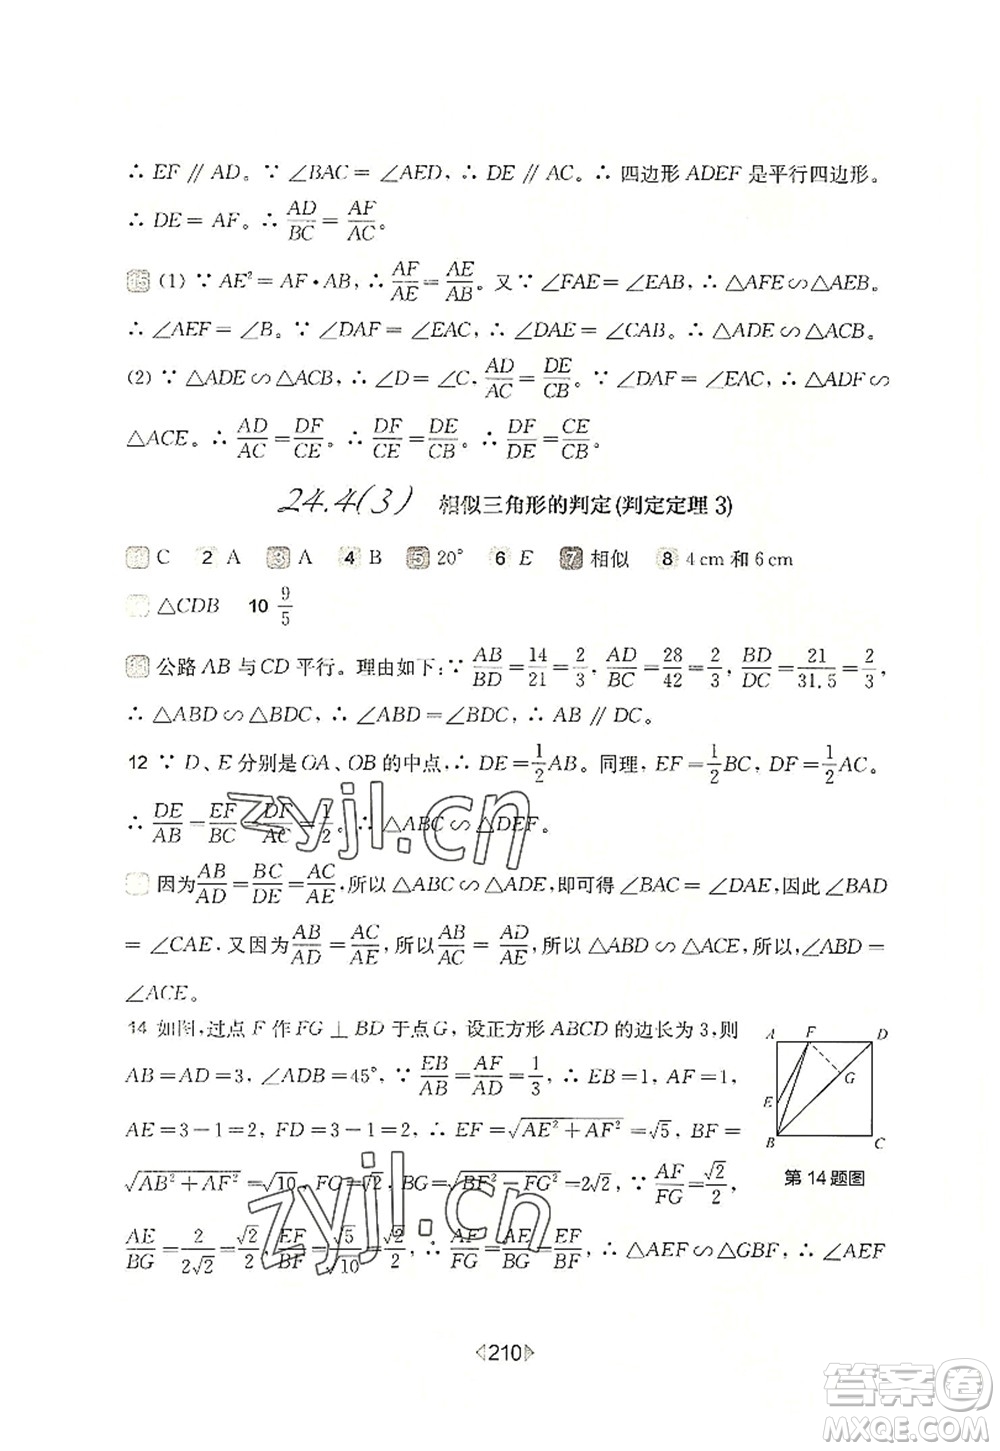 ∴ EF∥AD。∵ ∠BAC=∠AED,∴ DE∥AC。∴ 四边形ADEF是平行四边形。
∴ DE=AF。∴ AD/BC=AF/AC。
15 (1) ∵ AE²=AF·AB,∴ AF/AE=AE/AB。又∵ ∠FAE=∠EAB,∴ △AFE∽△AEB。
∴ ∠AEF=∠B。∵ ∠DAF=∠EAC,∴ ∠DAE=∠CAB。∴ △ADE∽△ACB。
(2) ∵ △ADE∽△ACB,∴ ∠D=∠C,AD/AC=DE/CB。∵ ∠DAF=∠EAC,∴ △ADF∽
△ACE。∴ AD/AC=DF/CE。∴ DF/CE=DE/CB。∴ DF/DE=CE/CB。
24.4(3) 相似三角形的判定(判定定理3)
1 C 2 A 3 A 4 B 5 20° 6 E 7 相似 8 4 cm和6 cm
△CDB 10 9/5
11 公路AB与CD平行。理由如下:∵ AB/BD=14/21=2/3,AD/BC=28/42=2/3,BD/DC=21/31.5=2/3,
∴ △ABD∽△BDC,∴ ∠ABD=∠BDC,∴ AB∥DC。
12 ∵ D、E分别是OA、OB的中点,∴ DE=1/2AB。同理,EF=1/2BC,DF=1/2AC。
∴ DE/AB=EF/BC=DF/AC=1/2。∴ △ABC∽△DEF。
因为AB/AD=BC/DE=AC/AE,所以△ABC∽△ADE,即可得∠BAC=∠DAE,因此∠BAD
=∠CAE.又因为AB/AD=AC/AE,所以AB/AC=AD/AE,所以△ABD∽△ACE,所以,∠ABD=
∠ACE。
14 如图,过点F作FG⊥BD于点G,设正方形ABCD的边长为3,则
AB=AD=3,∠ADB=45°,∵ EB/AB=AF/AD=1/3,∴ EB=1,AF=1,
AE=3-1=2,FD=3-1=2,∴ EF=√(AE²+AF²)=√5,BF=
√(AB²+AF²)=√10,FG=√2,BG=√(BF²-FG²)=2√2。∵ AF/FG=√2/2,
AE/BG=2/(2√2)=√2/2,EF/BF=√5/√10=√2/2,∴ AF/FG=AE/BG=EF/BF,∴ △AEF∽△GBF,∴ ∠AEF
A F D
G
E
B C
第14题图
210
zyjl.cn
zyjl.cn
答案圈
MXQE.COM